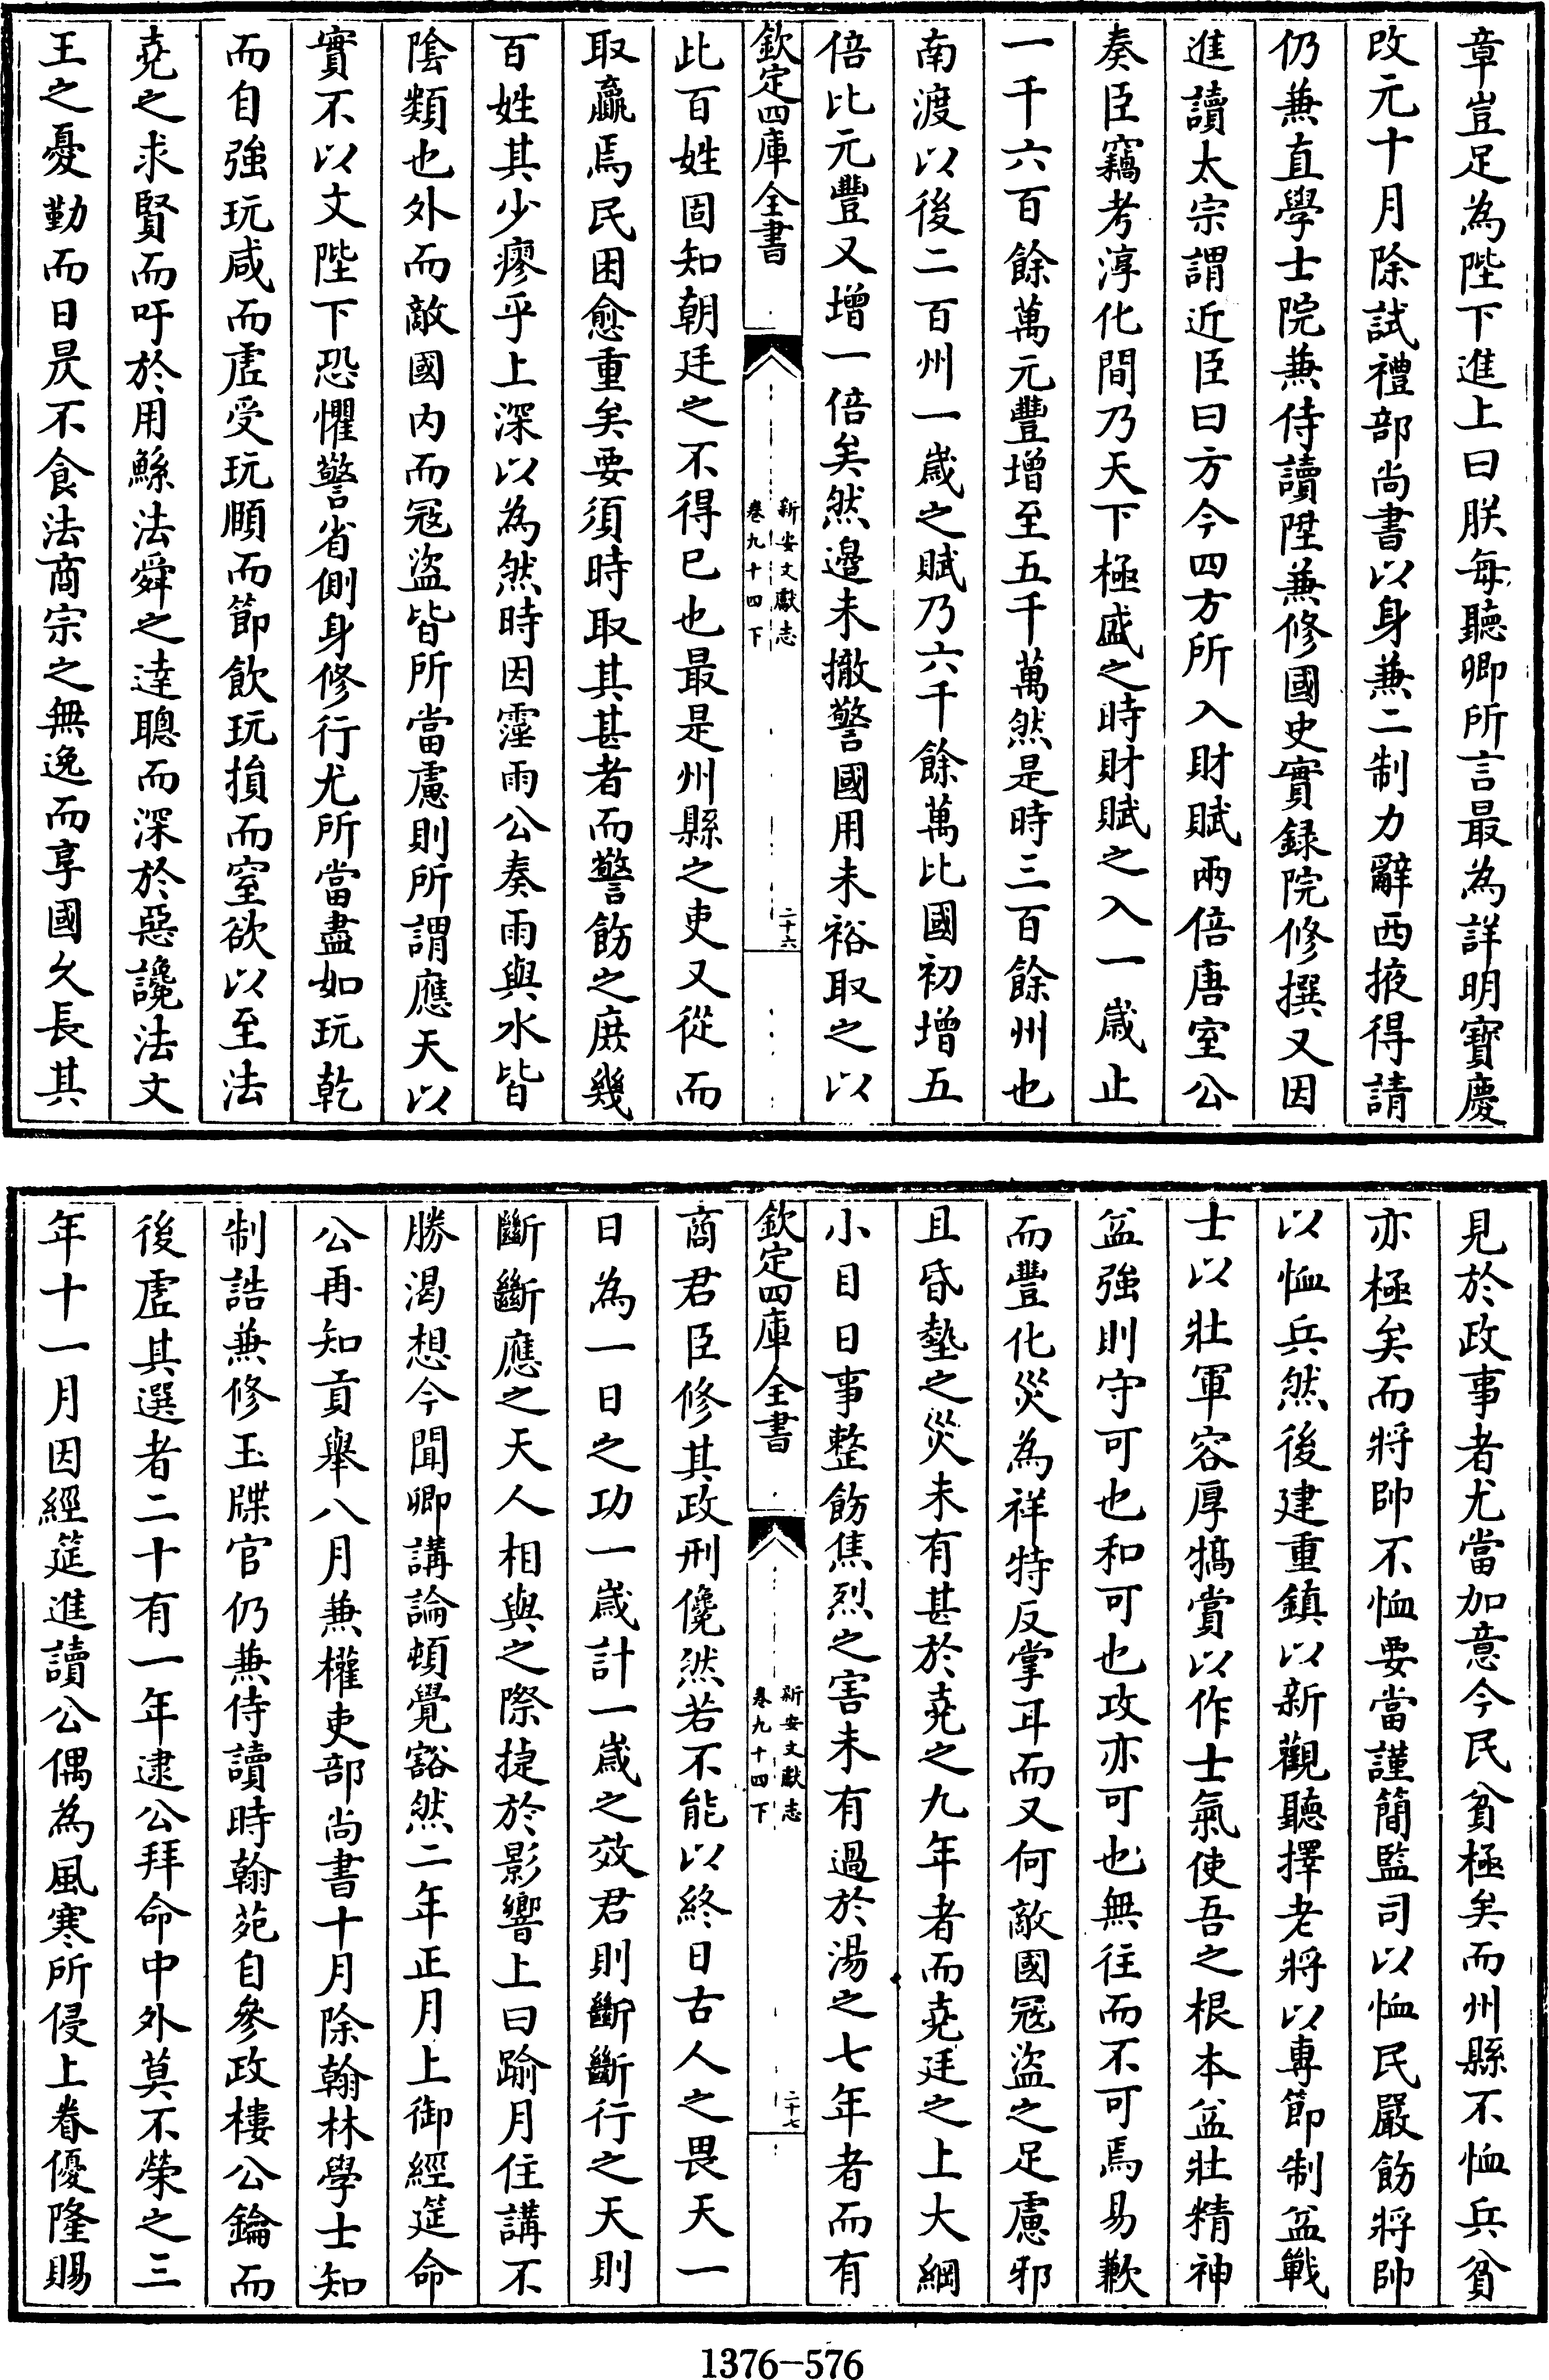 章豈足為陛下進上曰朕每聽卿所言最為詳明寳慶
改元十月除試禮部尚書以身兼二制力辭西掖得請
仍兼直學士院兼侍讀陞兼修國史實録院修撰又因
進讀太宗謂近臣曰方今四方所入財賦兩倍唐室公
奏臣竊考淳化間乃天下極盛之時財賦之入一歳止
一千六百餘萬元豐增至五千萬然是時三百餘州也
南渡以後二百州一歳之賦乃六千餘萬比國初增五
倍比元豐又增一倍矣然邉未撤警國用未裕取之以
欽定四庫全書
新安文獻志
卷九十四下
二十六
此百姓固知朝廷之不得已也最是州縣之吏又從而
取贏焉民困愈重矣要須時取其甚者而警飭之庶幾
百姓其少瘳乎上深以為然時因霪雨公奏雨與水皆
隂類也外而敵國内而冦盜皆所當慮則所謂應天以
實不以文陛下恐懼警省側身修行尤所當盡如玩乾
而自強玩咸而虛受玩頤而節飲玩損而窒欲以至法
堯之求賢而吁於用鯀法舜之達聰而深於惡讒法文
王之憂勤而日昃不食法商宗之無逸而享國久長其
見於政事者尤當加意今民貧極矣而州縣不恤兵貧
亦極矣而將帥不恤要當謹簡監司以恤民嚴飭將帥
以恤兵然後建重鎮以新觀聽擇老將以專節制益戰
士以壯軍容厚犒賞以作士氣使吾之根本益壯精神
益強則守可也和可也攻亦可也無往而不可焉易歉
而豐化災為祥特反掌耳而又何敵國冦盜之足慮邪
且昏墊之災未有甚於堯之九年者而堯廷之上大綱
小目日事整飭焦烈之害未有過於湯之七年者而有
欽定四庫全書
新安文獻志
卷九十四下
二十七
商君臣修其政刑儳然若不能以終日古人之畏天一
日為一日之功一歳計一歳之效君則斷斷行之天則
斷斷應之天人相與之際捷於影響上曰踰月住講不
勝渴想今聞卿講論頓覺豁然二年正月上御經筵命
公再知貢舉八月兼權吏部尚書十月除翰林學士知
制誥兼修玉牒官仍兼侍讀時翰苑自參政樓公鑰而
後虛其選者二十有一年逮公拜命中外莫不榮之三
年十一月因經筵進讀公偶為風寒所侵上眷優隆賜
1376-576